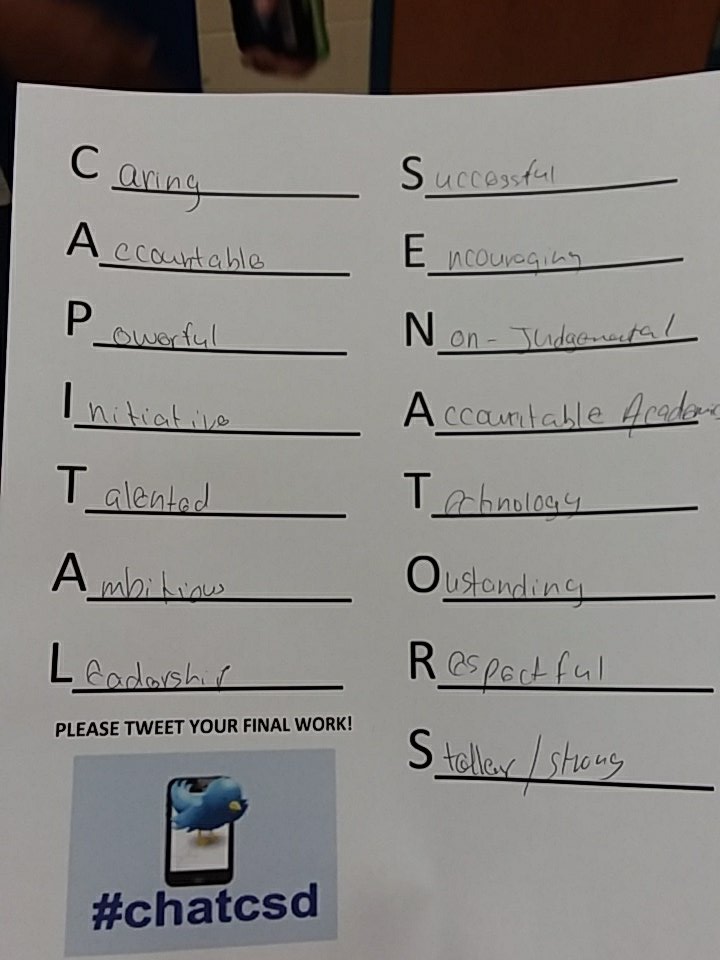 Caring
Accountable
Powerful
Initiative
Talented
Ambitious
Leadership
PLEASE TWEET YOUR FINAL WORK!
#chatcsd
Successful
Encouraging
Non-Judgemental
Accountable Academic
Technology
Oustanding
Respectful
Stellar/strong